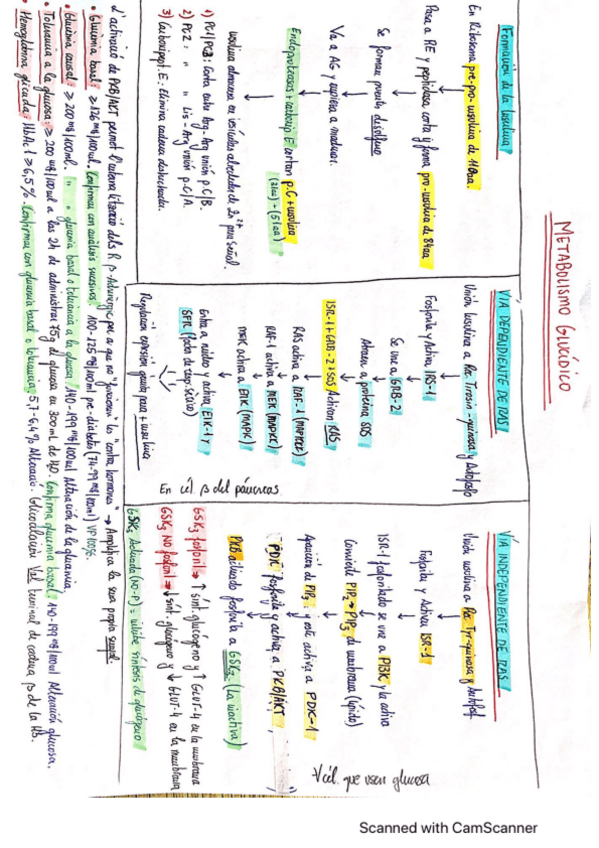 METABOLISMO GLUCÍDICO
Formación de la Insulina
En Ribosoma pre-pro-insulina de 110aa.
Pasa a RE y peptidasa corta y forma pro-insulina de 84aa
Se forman puentes disulfuro
Va a AG y empieza a madurar.
Endoproteasas + carboxip E cortan p.C + insulina
(31aa) + (51aa)
insulina almacena en vesículas alrededor de Zn2+ para señal.
1) PC1/PC3: Corta entre Arg-Arg unión p.C/B.
2) PC2: " " Lis-Arg unión p.C/A.
3) Carboxipept E: Elimina cadena
VÍA DEPENDIENTE DE RAS
Unión insulina a Rec Tirosin-quinasa y Autofosfo
Fosforila y Activa IRS-1
Se une a GRB-2
Atraen a proteína SOS
ISR-1 + GRB-2 + SOS Activan RAS
RAS activa a RAF-1 (MAPKKK)
RAF-1 activa a MEK (MAPKK)
MEK activa a ERK (MAPK)
Entra a núcleo y activa ELK-1 y
SFR (factor de resp. sérico)
Regulación expresión génica para + insulina
En cél. β del páncreas
VÍA INDEPENDIENTE DE RAS
Unión insulina a Rec Tyr-quinasa y Autofosf.
Fosforila y Activa ISR-1
ISR-1 fosforilado se une a PI3K y la activa
Convierte PIP2 → PIP3 de membrana (lípido)
Aparición de PIP3 : y este activa a PDK-1
PDK fosforila y activa a PKB/AKT
PKB activado fosforila a GSK3 (La inactiva)
GSK3 fosforil → ↑ sínt. glucógeno y ↑ GLUT-4 en la membrana
GSK3 NO fosforil → ↓ sínt. glucógeno y ↓ GLUT-4 en la membrana
GSK3 Activada (NO-P) = inhibe síntesis de glucógeno
∀ cél. que usen glucosa
L'activació de PKB/AKT permet dels R β-Adrenèrgic per a que no les "contra hormones" → Amplifica la seua propia senyal.
• Glucemia basal: ≥ 126 mg/100ml. Confirmar con análisis sucesivos. 100-125 mg/100ml pre-diabetes (74-99 mg/100ml) VP 100%.
• Glucemia casual: ≥ 200 mg/100ml. " " glucemia basal o tolerancia a la glucosa. 140-199 mg/100ml Alteración de la glucemia.
• Tolerancia a la glucosa: ≥ 200 mg/100ml a las 2h de administrar 75g de glucosa en 300ml de H2O. Confirma glucemia basal. 140-199 mg/100ml Alteración glucosa.
• Hemoglobina glicada: HbA1 ≥ 6,5%. Confirmar con glucemia basal o tolerancia. 5,7-6,4% Alteració. Glicosilación Val terminal de cadena β de la Hb.
Scanned with CamScanner